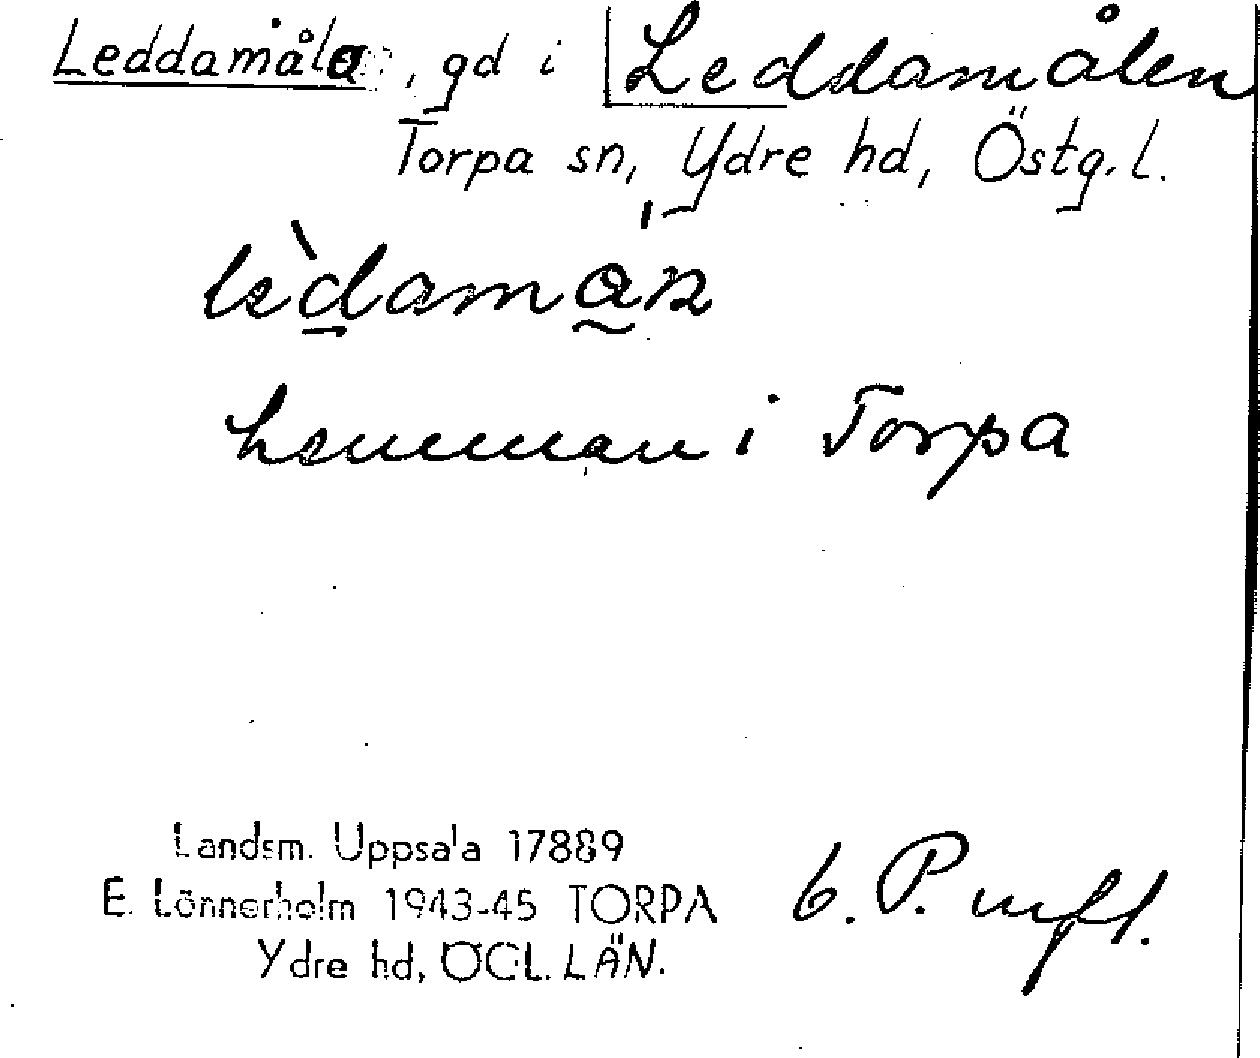 Leddamåla, gd i Leddamålen
Torpa sn, Ydre hd, Östg. l.
hemman i Torpa
Landsm. Uppsala 17889
E. Lönnerholm 1943-45 TORPA
Ydre hd, ÖGL. LÄN.